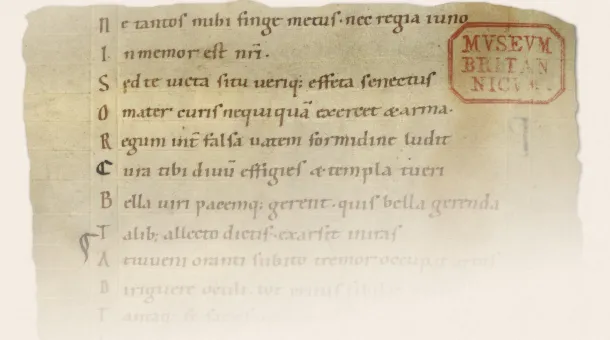 N e tantos mihi finge metus · nec regia iuno
I nmemor est nr̄i .
S ed te uicta situ ueriq; effeta senectus
O mater curis nequiquā exercet & arma ·
R egum int̄ falsa uatem formidine ludit
C ura tibi diuū effigies & templa tueri
B ella uiri pacemq; gerent · quis bella gerenda
T alib; allecto dictis · exarsit in iras
A t iuueni oranti subito tremor occupat
D iriguere oculi tot
T
MVSEVM
BRITAN
NICVM